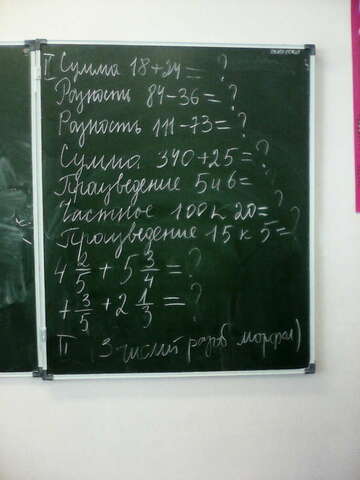 I Сумма 18+24= ?
Разность 84-36= ?
Разность 111-73= ?
Сумма 340+25= ?
Произведение 5и6= ?
Частное 100к 20= ?
Произведение 15 к 5= ?
4 2/5 + 5 3/4 = ?
7 3/5 + 2 1/3 = ?
II 3 числит разб морфол)